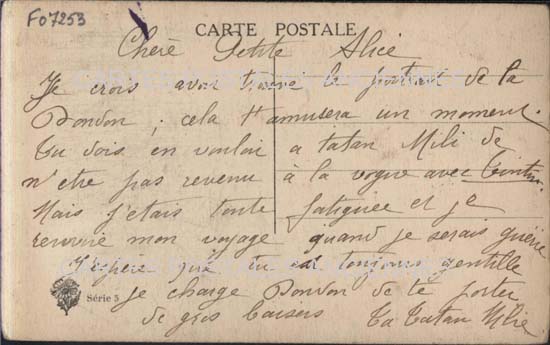 F07253
CARTE POSTALE
Chère Petite Alice
Je crois avoir trouvé le portrait de la
Dondon ; cela t'amusera un moment.
Tu dois en vouloir a tatan Mili de
n'etre pas revenu à la vogue avec
Mais j'etais toute fatiguee et je
mon voyage quand je serais guérie
J'éspère que tu es toujours gentille
Série 5
je charge Dondon de te porter
de gros baisers Ta Tatan Milie